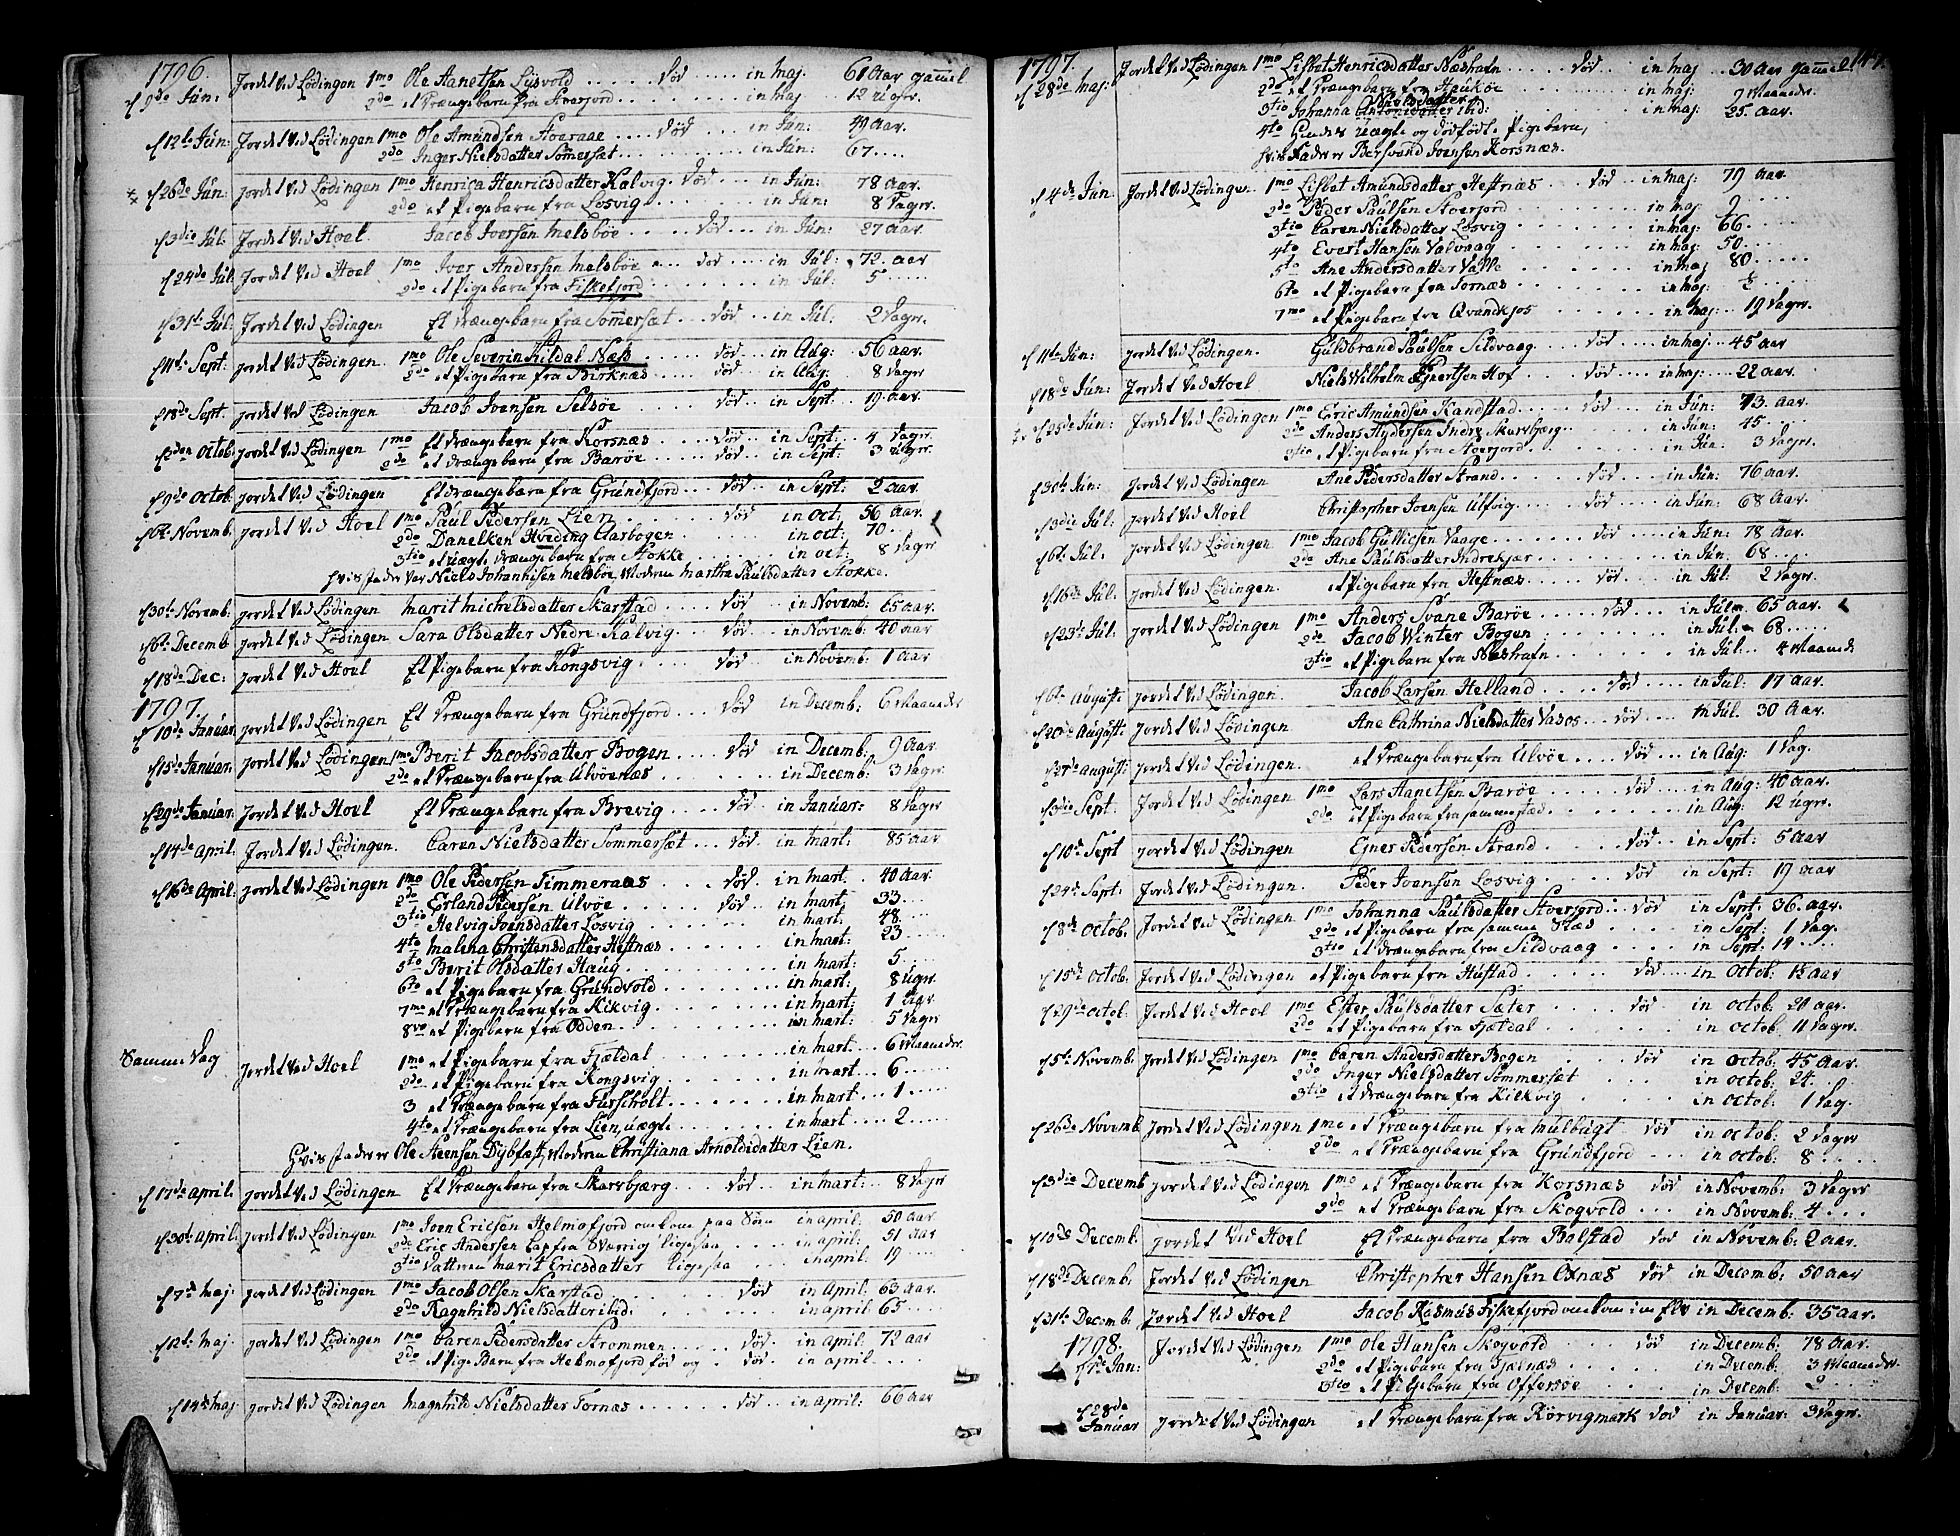 1796.
d 9de Jún: Jordet ved Lødingen 1mo Ole Aanetsen Lysvold ..... død ..... in maj. 61 Aar gammel
2do et Drængebarn fra Stoerfjord ........ in maj 12 Uger.
d 12te Jún: Jordet ved Lødingen 1mo Ole Amúndsen Stoeraae .... død ... in Jún: 49 Aar.
2do Inger Nielsdatter Sømersæt ........ in Jún: 67....
d 26de Jún: Jordet ved Lødingen 1mo Henrica Henricsdatter Kalvig. død .. in Jún: 78 Aar.
2do et Pigebarn fra Losvig ........ in Jún: 8 Dager.
d 3dio Júl: Jordet ved Hoel Jacob Iversen Melsbøe .... død .. in Jún: 27 Aar.
d 24de Júl: Jordet ved Hoel 1mo Iver Andersen Melsbøe .. død ... in Júl: 72. Aar
2do et Pigebarn fra Fiskefjord ....... in Júl: 5 ....
d 31te Júl: Jordet ved Lødingen Et Drængebarn fra Sommersæt ... død ... in Júl: 2 Dager.
d 11te Sept: Jordet ved Lødingen 1mo Ole Severin Kildal Næss ..... død ... in Aúg: 56 Aar.
2do et Pigebarn fra Birknæs ..... død ... in Aúg: 8 Dager
d 18de Sept. Jordet ved Lødingen Jacob Joensen Selbøe ..... død ... in Sept. 19 Aar.
d 2den Octob: Jordet ved Lødingen 1mo Et Drængebarn fra Korsnæs ..... død .. in Sept: 4 Dager.
2do et Drængebarn fra Barøe ..... død ... in Sept: 3 Uger.
d 9de Octob: Jordet ved Lødingen Et drængebarn fra Grúndfjord ... død ... in Sept: 2 Aar.
d 6te Novemb. Jordet ved Hoel 1mo Paúl Pedersen Lien ..... død ... in Oct: 56 Aar.
2do Danelken Hveding Aarbogen ..... in oct: 70 ...
3tio et úægte drængebarn fra Stokke ..... in oct: 8 Dager
hvis fader var Niels Johannisen Melsbøe, Moderen Martha Paúlsdatter Stokke.
d 30te Novemb. Jordet ved Lødingen Marit Michelsdatter Skarstad .... død ... in Novemb: 65 Aar.
d 6te Decemb Jordet ved Lødingen Sara Olsdatter Nedre Kalvig .... død ... in Novemb: 40 Aar
d 18de Dec: Jordet ved Hoel Et Pigebarn fra Kongsvig ..... død ... in Novemb: 1 Aar
1797.
d 10de Janúar Jordet ved Lødingen, Et Drængebarn fra Grúndfjord ... død ... in Decemb: 6 Maaneder
d 15de Janúar. Jordet ved Lødingen, 1mo Berit Jacobsdatter Bogen .... død .. in Decemb. 9 Aar.
2do et Drængebarn fra Úlvøenæs ....... in Decemb: 3 Dager
d 29de Janúar. Jordet ved Hoel Et Drængebarn fra Brevig .... død ... in Janúar: 8 Dager
d 14de April. Jordet ved Lødingen. Caren Nielsdatter Sommersæt ... død ... in Mart: 85 Aar.
d 16de April. Jordet ved Lødingen 1mo Ole Pedersen Timmeraas .... død. in mart. 40 Aar.
2do Erland Pedersen Úlvøe ..... død ... in mart. 33 ....
3tio Helvig Ivensdatter Losvig ....... in mart: 48 ....
4to Malena Christensdatter Hestnæs ...... in mart: 23 ....
5to Berit Olsdatter Haúg ........ in mart: 5 ...
6to et Pigebarn fra Grúndvold ....... in mart: 8 Úger.
7mo et Drængebarn fra Kikvig ....... in mart: 1 Aar.
8vo et Pigebarn fra Odden ........ in mart: 5 Dager
Samme Dag Jordet ved Hoel 1mo et Pigebarn fra Fjældal ....... in mart 6 Maaneder.
2do et Pigebarn fra Kongsvig ....... in mart ... 6 ....
3 et Drængebarn fra Fúrscholt ...... in mart ... 1 ....
4to et Drængebarn fra Lien, úægte ...... in mart .... 2 .....
Hvis fader er Ole Steensen Dybfæst, Moderen Christiana Arnoldsdatter Lien.
d 17de April. Jordet ved Lødingen Et Drængebarn fra Skarsbjærg .... død ... in mart: ... 8 Dager
d 30te April. Jordet ved Lødingen 1mo Joen Ericsen Helmofjord omkom paa Søen in april. 50 Aar.
2do Eric Andersen Lap fra Sverrig ligesaa .... in april: 51 Aar
3tio Dattren Marit Ericsdatter ligesaa ... in april: 19 ....
d 7de Maj: Jordet ved Lødingen 1mo Jacob Olsen Skarstad ...... død ... in April: 63 Aar.
2do Ragnhild Nielsdatter ibid: ....... in april: 65 .....
d 12te Maj. Jordet ved Lødingen 1mo Caren Pedersdatter Strommen .... død. in april: 72 Aar
2do et Pige Barn fra Helmofjord fød og . død .. in april .....
d 14de Maj Jordet ved Lødingen Magnhild Nielsdatter Tornæs ..... død ... in april: 66 Aar
1797. 147.
d 28de Maj: Jordet ved Lødingen 1mo Lisbet Henricsdatter Næshafn ... død ... in maj ... 30 Aar gammel
2do et Drængebarn fra Haúkøe ...... in maj: 9 Maaneder.
3tio Johanna Antonisdatter ibid: ..... in maj: 25. Aar.
4to Hendes úægte og dødfødte Pigebarn,
hvis Fader er Bersvend Joensen Korsnæs.
d 4de Jún: Jordet ved Lødingen 1mo Lisbet Amúndsdatter Hestnæs .. død .. in Maj: 79 Aar
2do Peder Paúlsen Stoerjord ..... in maj 9 ....
3tio Caren Nielsdatter Losvig ...... in maj: 66 ....
4to Evert Hansen Valvaag ....... in maj: 50 ....
5to Ane Andersdatter Valle ...... in maj 80 .....
6to et Pigebarn fra Tornæs ....... in maj: ½ .....
7mo et Pigebarn fra Qvandkjos ....... in maj: .. 19 Dager.
d 11te Jún: Jordet ved Lødingen. Gúldbrand Paúlsen Sildvaag .... død ... in maj .. 45 Aar
d 18de Jún: Jordet ved Hoel Niels Wilhelm Ejnertsen Hof .... død ... in maj: .. 22 Aar.
d 25de Jún: Jordet ved Lødingen 1mo Eric Amúndsen Kandstad .... død ... in Jún: 73. Aar.
2do Anders Andersen Indre Skarsbjærg ..... in Jún: 45 ....
3tio et Pigebarn fra Stoerjord ....... in Jún: 3 Dager.
d 30te Jún: Jordet ved Lødingen Ane Pedersdatter Strand ..... død ... in Jún: 76 Aar.
d 3dio Júl: Jordet ved Hoel Christopher Joensen Úlfvig .... død ... in Jún: 68 Aar.
d 6te Júl. Jordet ved Lødingen 1mo Jacob Gúllicsen Vaage ..... død ... in Jún: 78 Aar.
2do Ane Paúlsdatter Indrekjær ...... in Jún. 68 ....
d 16de Júl. Jordet ved Lødingen. et Pigebarn fra Hestnæs ..... død ... in Júl: 2 Dager.
d 23de Júl. Jordet ved Lødingen 1mo Anders Svane Barøe .... død ... in Júl. 65 Aar.
2do Jacob Winter Bogen ...... in Júl. 68 .....
3tio et Pigebarn fra Næshafn ..... in Júl ... 4 Maaneder
d 6te Aúgústi Jordet ved Lødingen. Jacob Larsen Helland ..... død .... in Júl: 17 Aar.
d 20de Aúgústi Jordet ved Lødingen Ane Cathrina Nielsdatter Vasos ... død .... in Júl. 30 Aar.
d 27de Aúgústi Jordet ved Lødingen. et Drængebarn fra Úlvøe .... død ... in Aúg: 1 Dag.
d 3dio Sept. Jordet ved Lødingen 1mo Lars Aanetsen Barøe ..... død ... in Aúg: 40 Aar.
2do et Pigebarn fra sammestæd ....... in Aúg: 12 Úger.
d 10de Sept Jordet ved Lødingen Ejner Pedersen Strand ..... død ... in Sept: 5 Aar
d 24de Sept. Jordet ved Lødingen. Peder Ivensen Losvig ..... død ... in Sept: 19 Aar
d 8de Octob. Jordet ved Lødingen 1mo Johanna Paúlsdatter Stoerjord .. død ... in Sept. 36. Aar.
2do et Pigebarn fra samme Stæd ..... in Sept: 1 Dag.
3tio et Drængebarn fra Sildvaag ..... in Sept: 14 ....
d 15de Octob. Jordet ved Lødingen et Pigebarn fra Hústad ..... død ... in Octob: 15 Aar
d 29de Octob: Jordet ved Hoel 1mo Ester Paúlsdatter Sæter .... død ... in Octob: 20 Aar.
2do et Pigebarn fra Fjældal ....... in octob: 11 Dager.
d 5te Novemb. Jordet ved Lødingen 1mo Caren Andersdatter Bogen .... død ... in octob: 45 Aar.
2do Inger Nielsdatter Sømmersæt .... in octob: 24 ...
3tio et Drængebarn fra Kilkvig ..... in octob: 1 Dag.
d 26de Novemb Jordet ved Lødingen 1mo et Drængebarn fra Múlbúgt .. død ... in octob: 2 Dager
2do et Pigebarn fra Grúndfjord .... in octob: 8 ....
d 3dio Decemb Jordet ved Lødingen 1mo et Drængebarn fra Korsnæs død ... in Novemb: 3 Dager
2do et Drængebarn fra Skogvold .... in Novemb: 4 ...
d 10de Decemb. Jordet ved Hoel Et Drængebarn fra Balstad død ... in Novemb: 2 Aar.
d 18de Decemb: Jordet ved Lødingen Christopher Hansen Oxnæs død ... in Decemb: 50 Aar
d 31te Decemb: Jordet ved Hoel Jacob Rasmús Fiskefjord omkom i en Elv in Decemb: 35 Aar.
1798.
d 7de Jan: Jordet ved Lødingen 1mo Ole Hansen Skogvold .... død ... in Decemb: 78 Aar.
2do et Pigebarn fra Fjælnæs ...... in Decemb: 3 Maaneder.
3tio et Pigebarn fra Offersøe ..... in Decemb: 2 ....
d 28de Janúar Jordet ved Lødingen et Drængebarn fra Rørvigmark død ... in Janúar: 3 Dager.